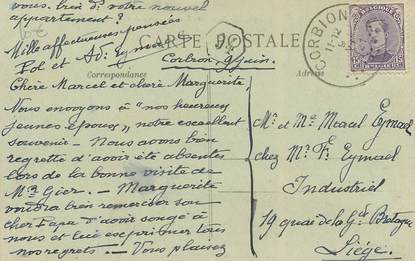 vous bien d votre nouvel
appartement?
Mille affectueuses pensées
Pol et Ad. Eymael
CARTE POSTALE
Correspondance
Adresse
Corbion, 9 Juin.
CORBION
11-12
BELGIQUE
15
Chère Marcel et chère Marguerite,
Nous envoyons à "nos heureux
jeunes époux" notre excellent
souvenir - Nous avons bien
regretté d'avoir été absents
lors de la bonne visite de
Mr Gier. - Marguerite
voudra bien remercier son
cher Papa d'avoir songé à
nous et lui exprimer tous
nos regrets. - Vous plaisez
Mr et Me Marcel Eymael
chez Mr Fs Eymael
Industriel
19 quai de la Gde Bretagne
Liége.